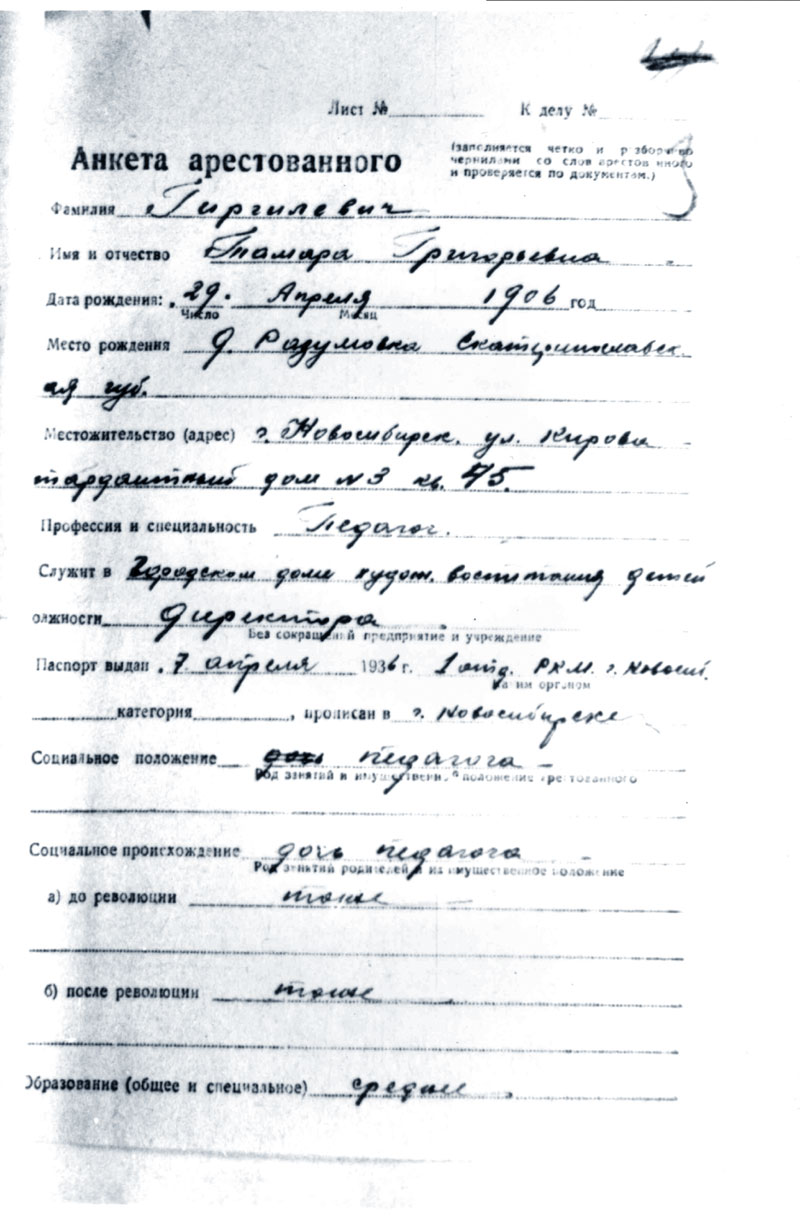 Лист № К делу №
Анкета арестованного
(заполняется четко и разборчиво
чернилами со слов арестованного
и проверяется по документам.)
3
Фамилия Гиргилевич
Имя и отчество Тамара Григорьевна
Дата рождения: 29. Апреля 1906 год
Число Месяц
Место рождения д. Разумовка Екатеринославск
ая губ.
Местожительство (адрес) г. Новосибирск. ул. Кирова
дом № 3 кв. 75.
Профессия и специальность Педагог.
Служит в Городском доме худож. воспитания детей
олжности директора
Без сокращений предприятие и учреждение
Паспорт выдан 7 апреля 1936 г. 1 отд. РКМ. г. Новосиб.
Каким органом
категория , прописан в г. Новосибирске
Социальное положение педагога
Род занятий и имущественное положение арестованного
Социальное происхождение дочь педагога
Род занятий родителей и их имущественное положение
а) до революции тоже
б) после революции тоже
Образование (общее и специальное) среднее